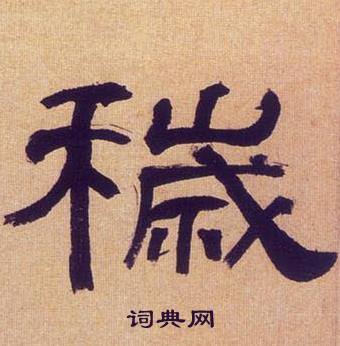 穢
词典网